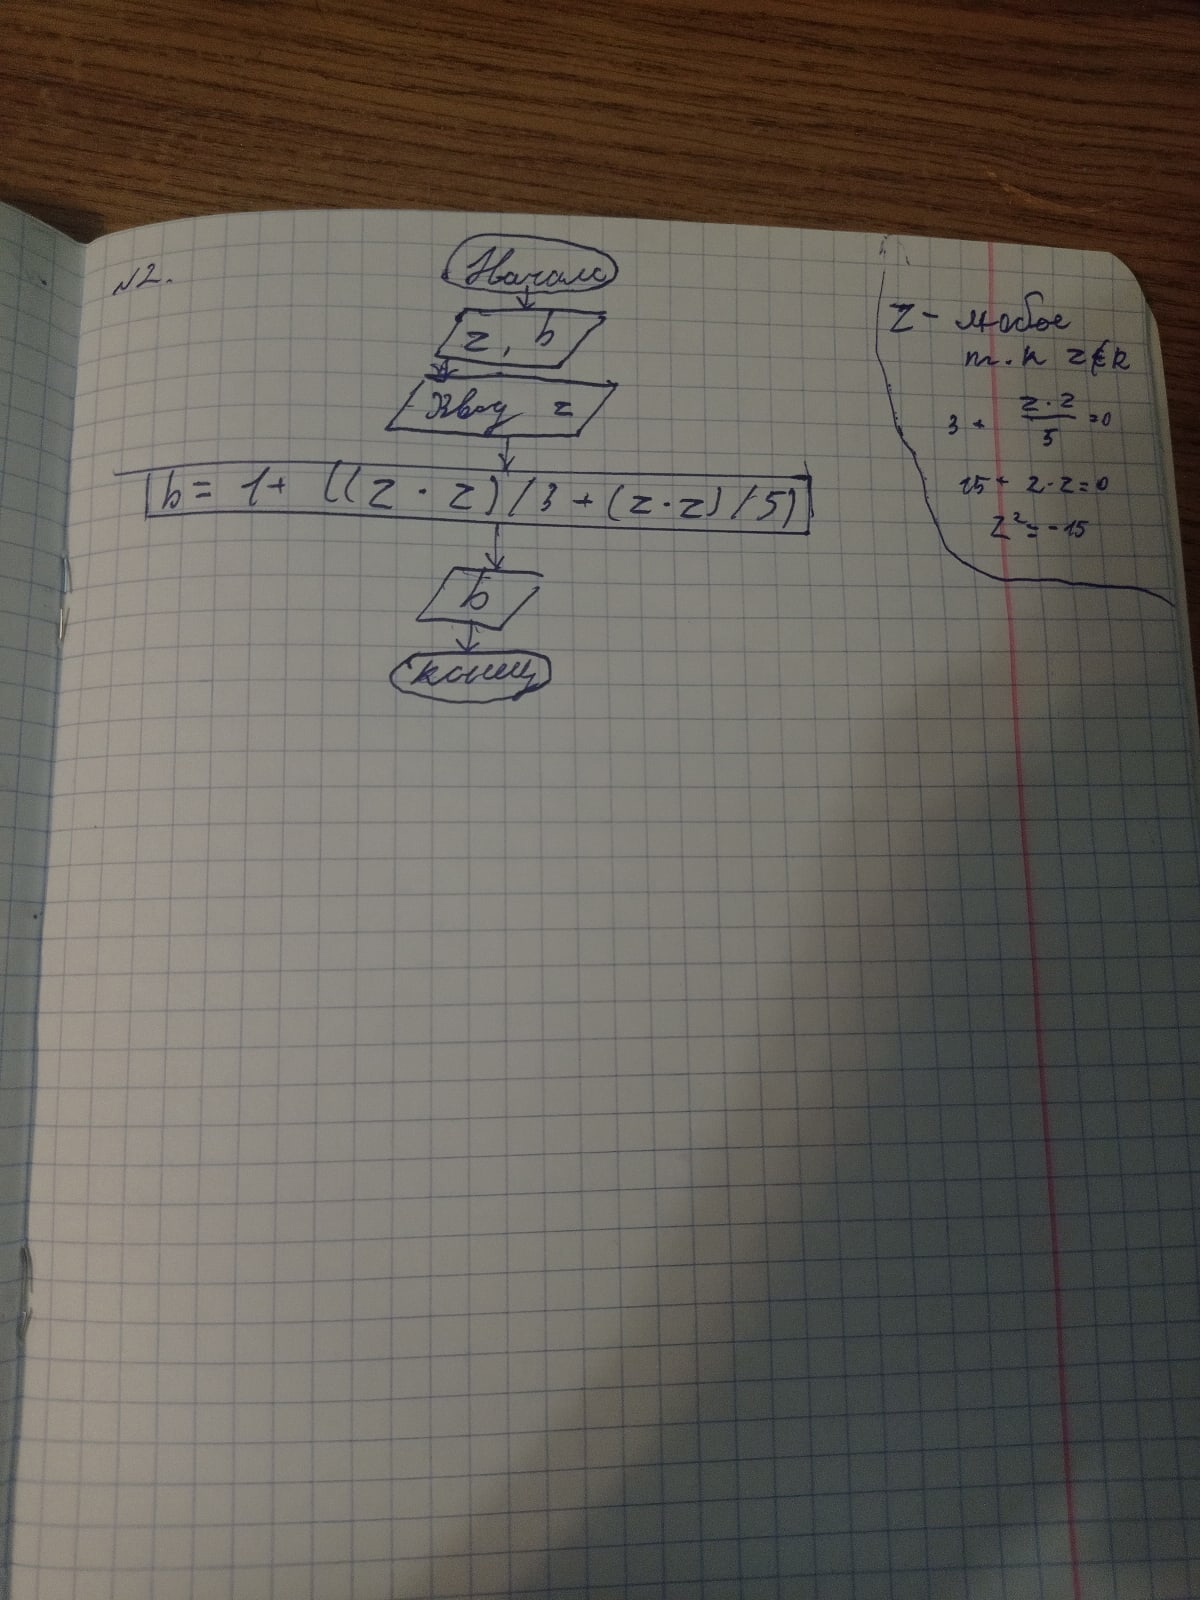 №2.
Начало
z, b
Ввод z
b = 1 + ((z · z) / 3 + (z · z) / 5)
b
конец
Z - любое
т.к z∈R
3 + z · z / 5 = 0
15 + z · z = 0
z² = -15